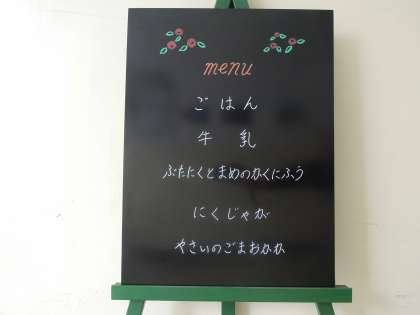 menu
ごはん
牛乳
ぶたにくとまめのかくにふう
にくじゃが
やさいのごまおかか